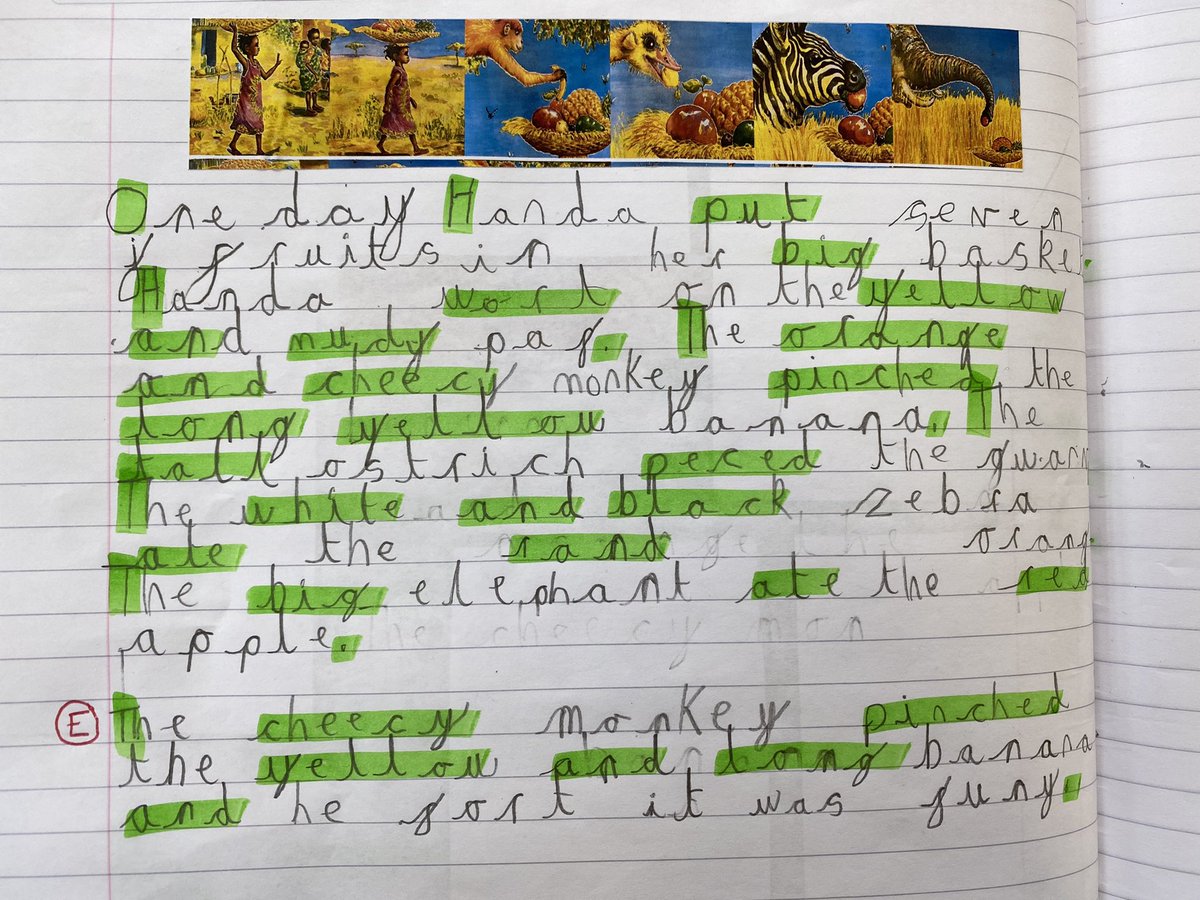 One day Handa put seven
fruits in her big basket.
Handa wort on the yellow
and mudy paf. The orange
and cheecy monkey pinched the
long yellow banana. The
tall ostrich peced the
The white and black zebra
ate the rand orang.
The big elephant ate the red
apple.
E The cheecy monkey pinched
the yellow and long banana
and he fort it was funy.